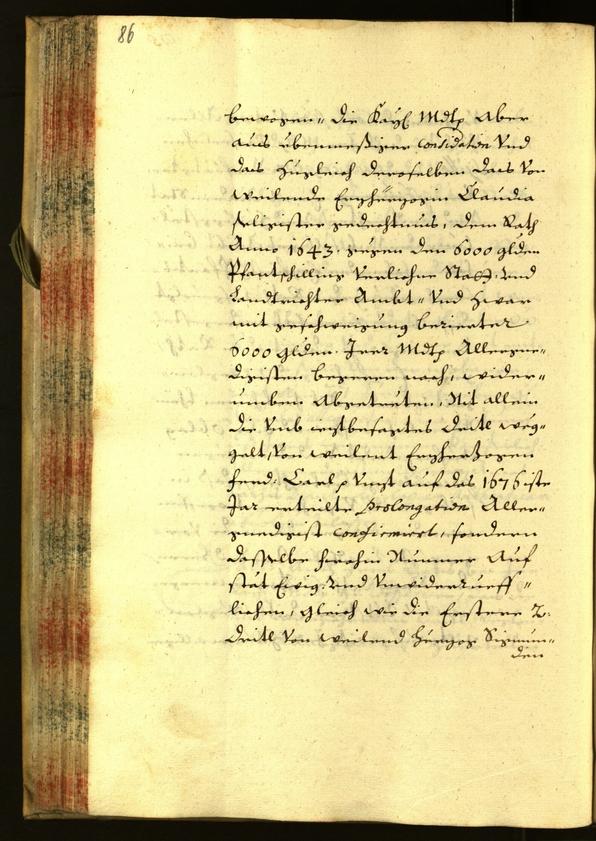 86
bewogen" die Kaÿl Mdtp Aber
aus übermeßiger Considation Vnd
das Zugleich deroselben das von
weilende Erzherzogin Claudia
selligister gedechtnus, dem Rath
Anno 1643. gegen den 6000 glden
Pfantschilling verlichne Statt: und
Landtrichter Ambt" Vnd zwar
mit geschweigung berierter
6000 glden. Irer Mdtp Allergne"
digisten begeren nach, wider"
umben Abgetreten, Nit allein
die vnb iezbesagtes dritl weg"
gelt, von weilent Erzherzogen
Ferd: Carl p Vnzt auf das 1676iste
Jar erteilte prolongation Aller"
gnedigist confirmiert, sondern
dasselbe hirohin Nummer Auf
stät Ewig: und Vnwiderrueff"
lichen, gleich wie die Erstere 2.
dritl von weilend Herzog Sigmun"
den